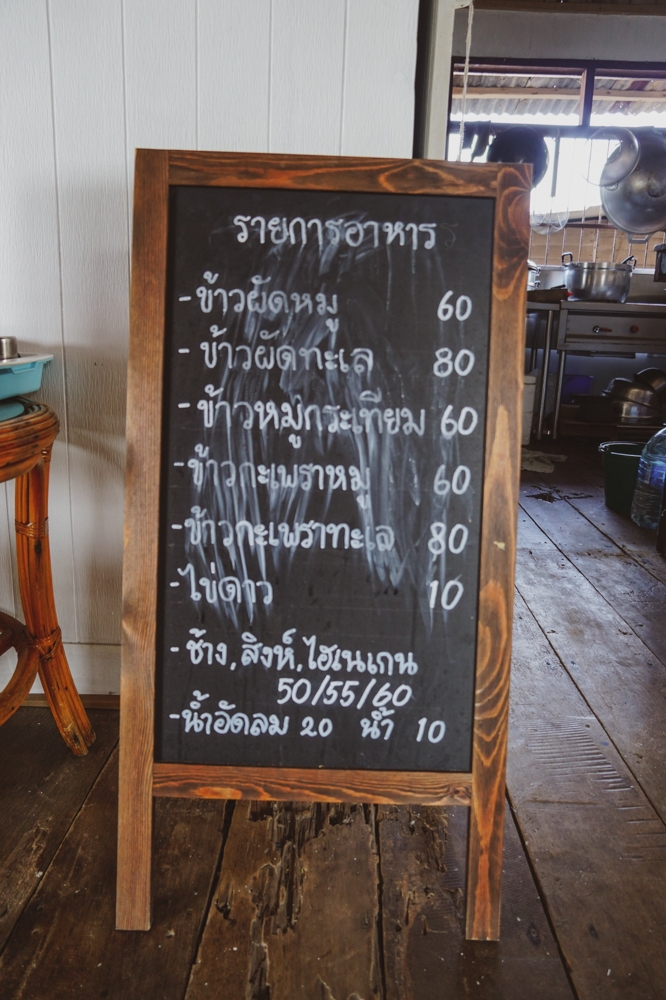 รายการอาหาร
-ข้าวผัดหมู 60
-ข้าวผัดทะเล 80
-ข้าวหมูกระเทียม 60
-ข้าวกะเพราหมู 60
-ข้าวกะเพราทะเล 80
-ไข่ดาว 10
-ช้าง,สิงห์,ไฮเนเกน
50/55/60
-น้ำอัดลม 20 น้ำ 10